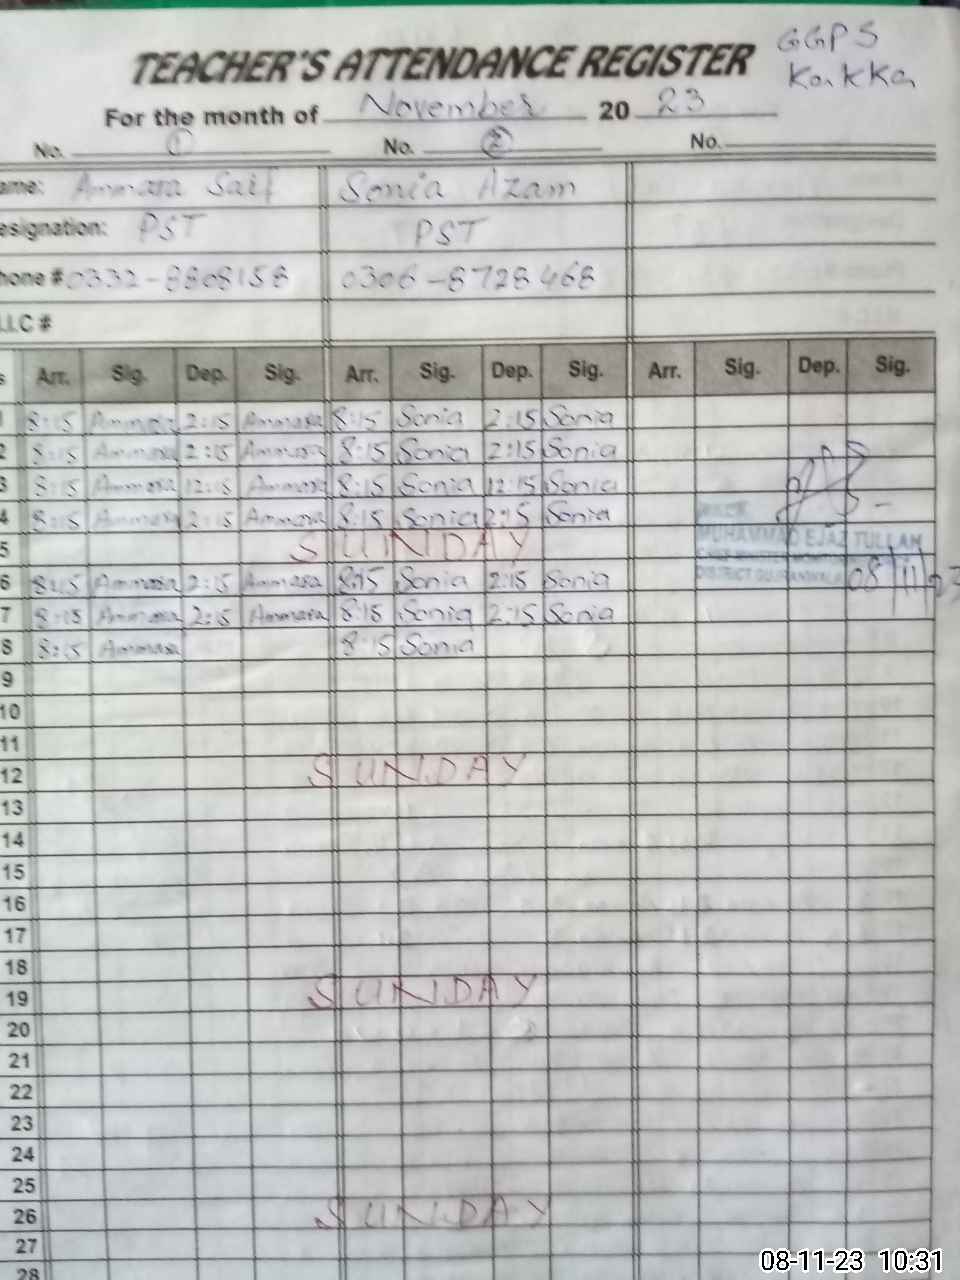 GGPS
TEACHER'S ATTENDANCE REGISTER
Kakka
For the month of November 20 23
No. 1 No. 2 No.
ame: Ammara Saif Sonia Azam
esignation: PST PST
hone # 0332-8808158 0306-8728468
LC #
s Arr. Sig. Dep. Sig. Arr. Sig. Dep. Sig. Arr. Sig. Dep. Sig.
1 8:15 Ammara 2:15 Ammara 8:15 Sonia 2:15 Sonia
2 8:15 Ammara 2:15 Ammara 8:15 Sonia 2:15 Sonia
3 8:15 Ammara 12:15 Ammara 8:15 Sonia 12:15 Sonia
4 8:15 Ammara 2:15 Ammara 8:15 Sonia 2:15 Sonia
MUHAMMAD EJAZ TULLAH
5 SUNDAY
DISTRICT GUJRANWALA 08/11/23
6 8:15 Ammara 2:15 Ammara 8:15 Sonia 2:15 Sonia
7 8:15 Ammara 2:15 Ammara 8:15 Sonia 2:15 Sonia
8 8:15 Ammara 8:15 Sonia
9
10
11
12 SUNDAY
13
14
15
16
17
18
19 SUNDAY
20
21
22
23
24
25
26 SUNDAY
27
28
08-11-23 10:31